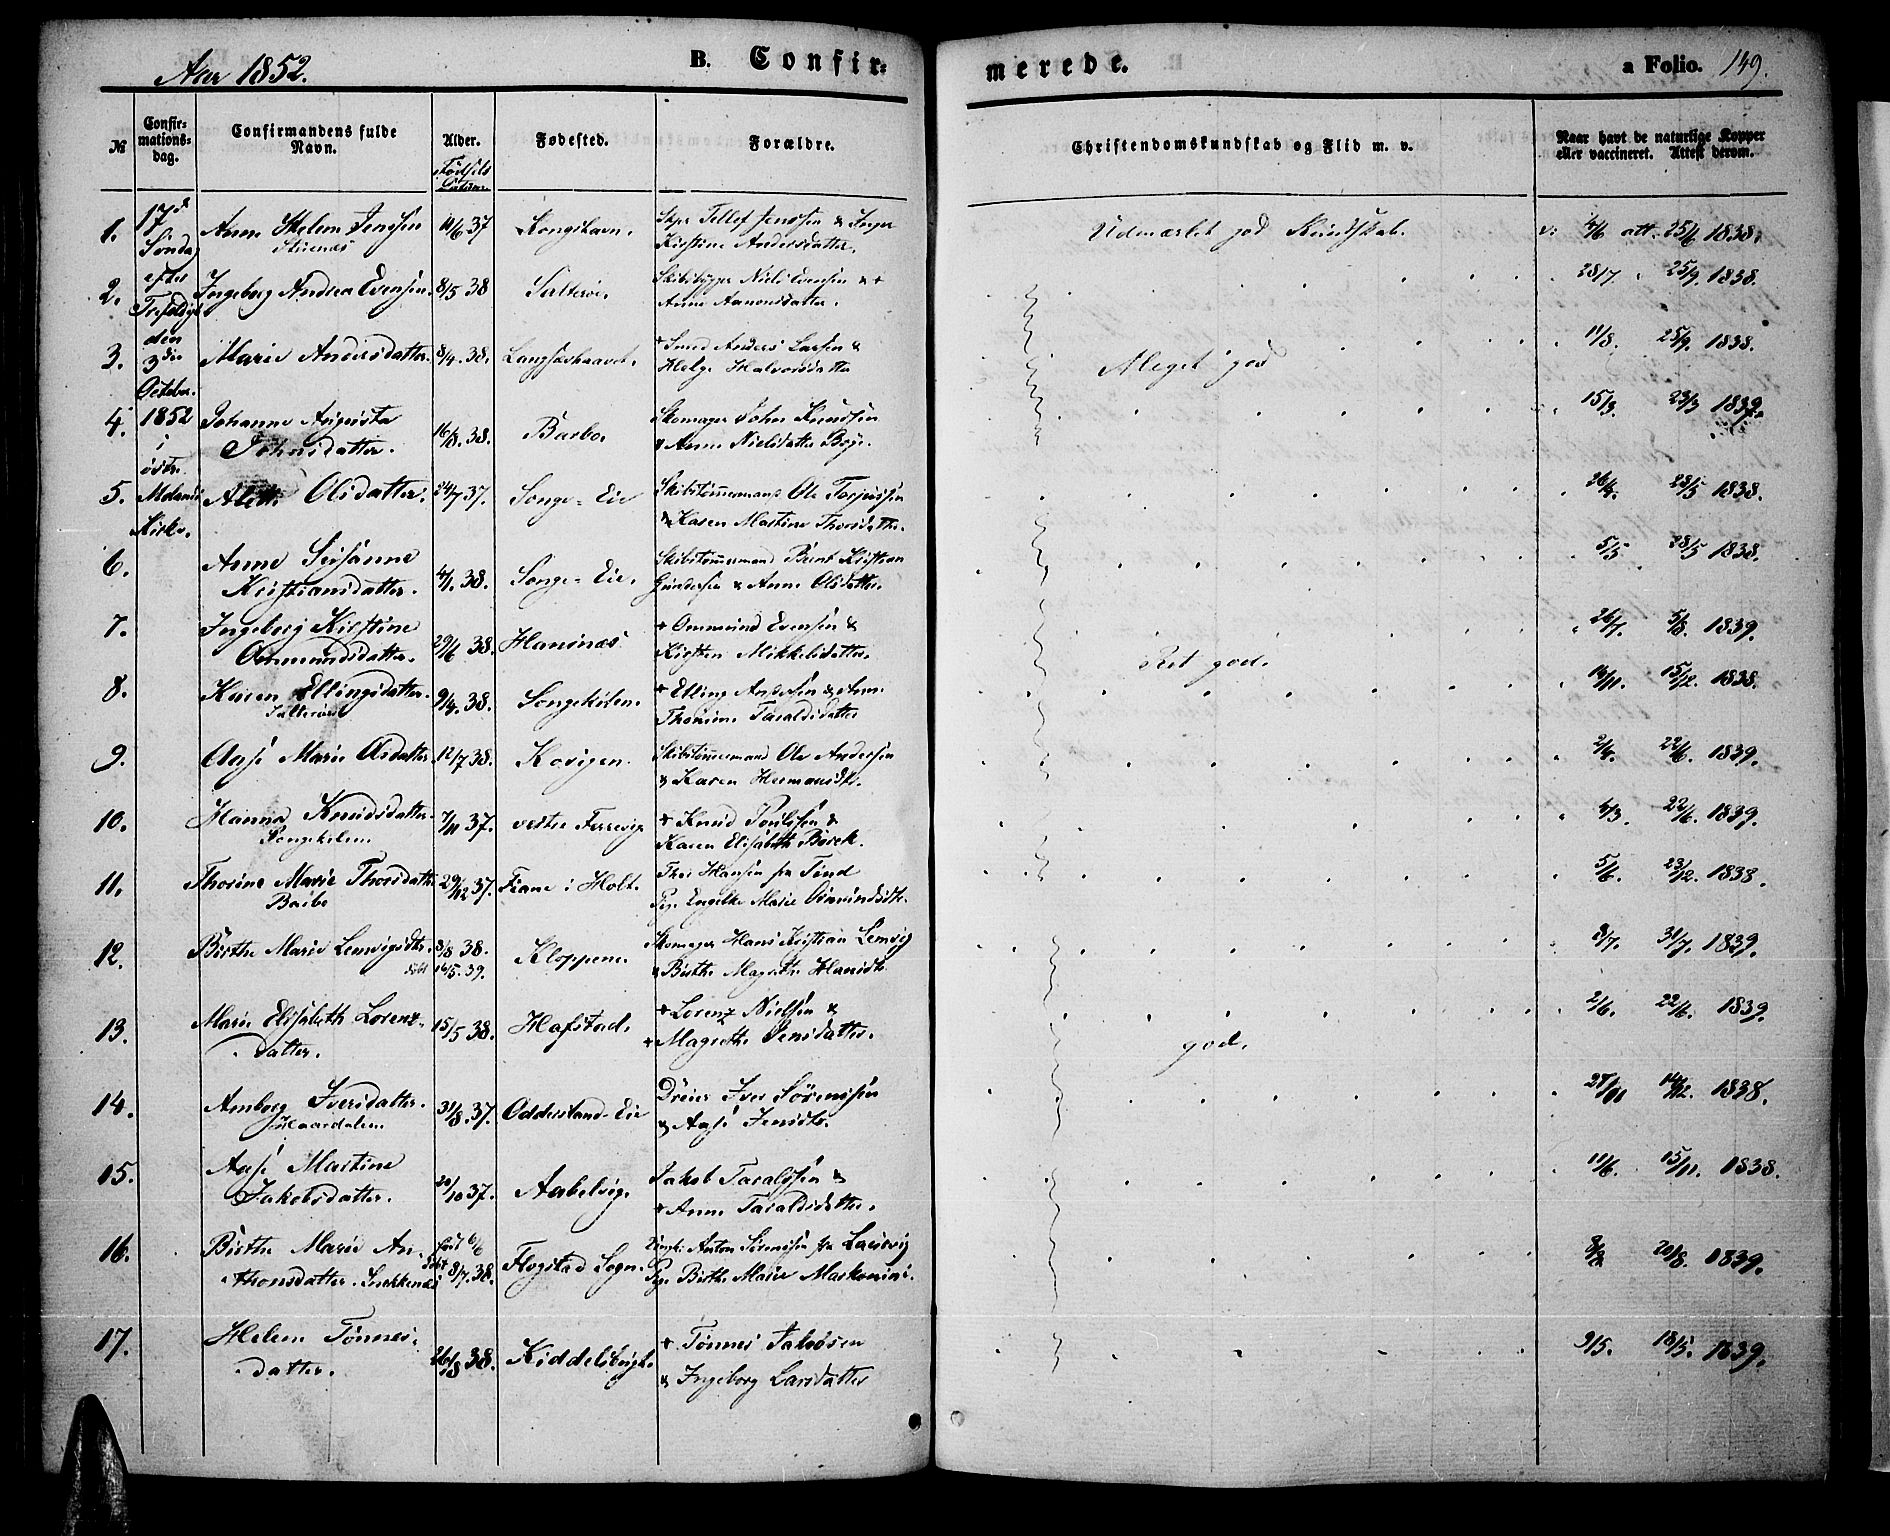 Aar 1852.
B. Confir=
merede.
a Folio. 149.
№
Confir=
mations=
dag.
Confirmandens fulde
Navn.
Alder.
Fødsels
Datum
Fødested.
Forældre.
Christendomskundskab og Flid m. v.
Naar havt de naturlige Kopper
eller vaccineret. Attest derom.
17de
Søndag
efter
Trefoldigh
den
3die
October
1852
i
østre
Molands
Kirke.
1. Anne Helene Jenssen 37 Kongshavn. Skpr Tellef Jenssen & Inger
Kirstine Andersdatter. Udmærket god Kundskab. att. 25/6 1838.
2. Ingeborg Andrea Evensen. 8/5 38 Salterøe. Skibsbygger Niels Evensen & +
Anne Aamondsdatter. 28/7 25/9 1838.
3. Marie Andersdatter. 8/4 38. + Smed Anders Larsen &
Helge Halvorsdatter Meget god 11/8. 25/9. 1838.
4. Johanne Augusta
Johnsdatter. 16/8. 38. Barbo. Skomager John Knudsen
& Anne Nielsdatter Boye. 15/3. 23/3 1839.
5. Olsdatter. 24/7 37. Songe=Eie Skibstømmermand Ole Terjessen
& Karen Martine Thorsdatter. 28/5 1838.
6. Anne Susanne
Kristiansdatter. 4/1. 38. Songe=Eie. Skibstømmermand Bent Kristian
Gundersen & Anne Olsdatter. 5/5 28/5 1838.
7. Ingeborg Kirstine
Ommundsdatter. 29/6 38. Hansnæs + Ommund Evensen &
Kirsten Mikkelsdatter. Ret god. 26/7. 5/8. 1839.
8. Karen Ellingsdatter.
Salterøe 9/4. 38. Songekilen. + Elling Andersen & Anne
Thomine Taraldsdatter 15/12. 1838.
9. Aase Marie Olsdatter. 12/7 38. Kovigen Skibstømmermand Ole Andersen
& Karen Hermansdtr. 22/6. 1839.
10. Hanna Knudsdatter.
Songekilen 7/11 37. vestre Ferrevig + Knud Poulsen &
Karen Elisabeth Birck. 4/3. 22/6. 1839.
11. Thorine Marie Thorsdatter
Barbo 29/12 37. Fiane i Holt. Thor Hansen fra
Pige Engelke Marie 5/6. 23/12. 1838.
12. Birthe Marie Lemvigsdtr. 8/8 38.
døbt 16/5. 39. Kloppene Skomager Hans Kristian Lemvig
& Birthe Magrethe Hansdtr 8/7. 31/7. 1839.
13. Marie Elisabeth Lorenz-
datter. 15/5 38. Hafstad. + Lorenz Nielsen &
+ Magrethe Jensdatter. god. 2/6. 22/6. 1839.
14. Amborg Iversdatter. 31/8. 37. Odderstand=Eie Dreier Iver Sørensen
& Aase Jensdtr. 27/11 14/12. 1838.
15. Aase Martine
Jakobsdatter. 20/10 37. Aabelvig. Jakob Taraldsen &
+ Anne Taraldsdatter. 11/6. 15/11. 1838.
16. Birthe Marie An-
thonsdatter. Snekkenæs født 6/6
døbt 8/7. 38. Flogstad Sogn. Ungk: Anton Sørensen fra Laurvig
Pige Birthe Marie 20/8. 1839.
17. Helene Tønnes-
datter. 26/8 38. + Tønnes Jakobsen
& Ingeborg Larsdatter 9/5. 18/5. 1839.